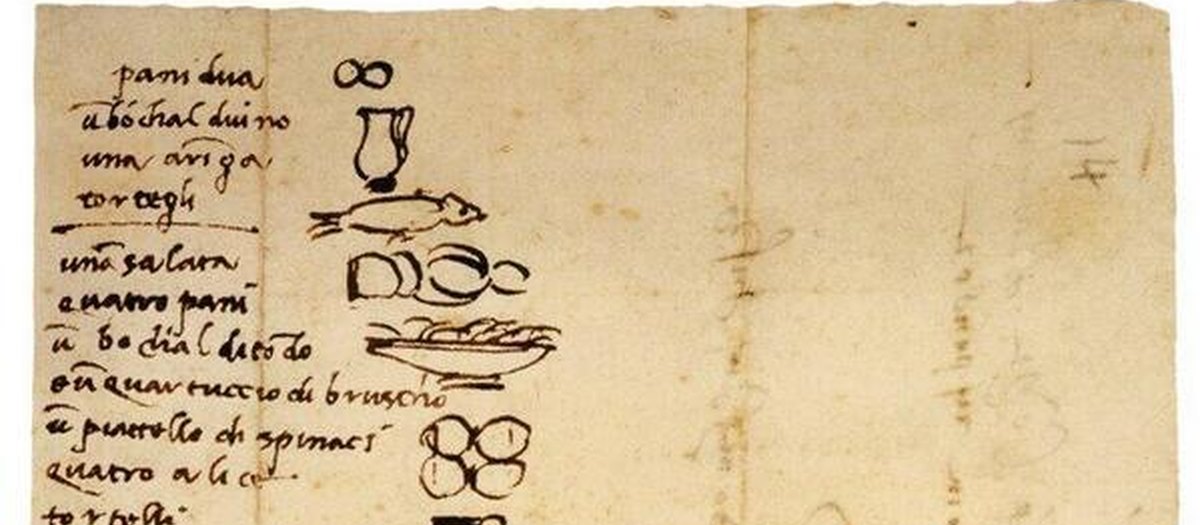 pani dua
ū bochal duino
una aringa
tortegli
una salata
quatro pani
ū bochal ditōdo
eū quartuccio di bruscho
ū piattello di spinaci
quatro alice
tortelli
14